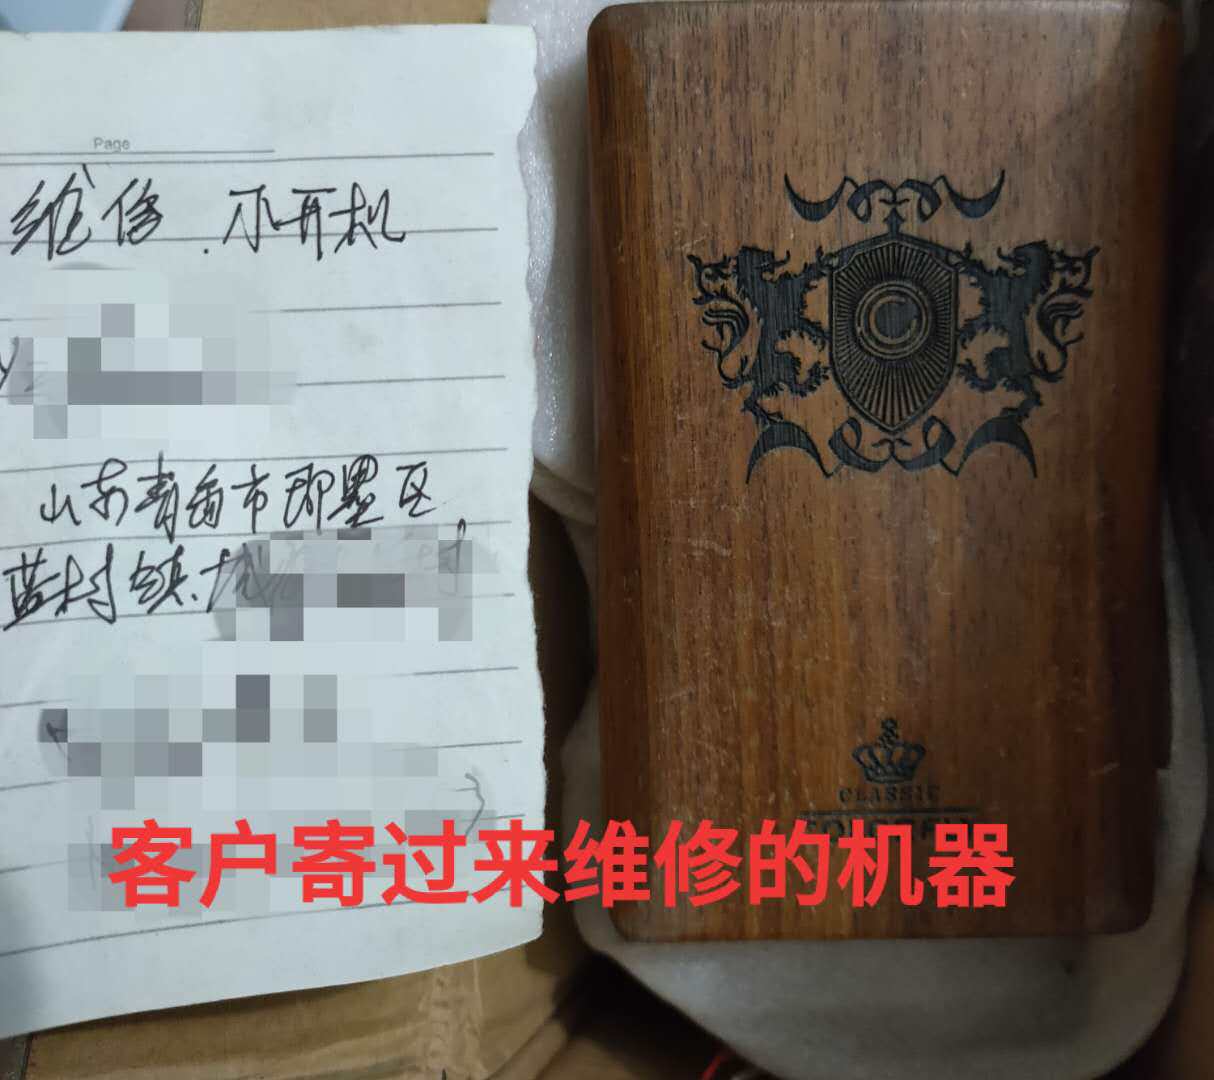 Page
维修.不开机
山东青岛市即墨区
蓝村镇.城
村
C
CLASSIC
客户寄过来维修的机器